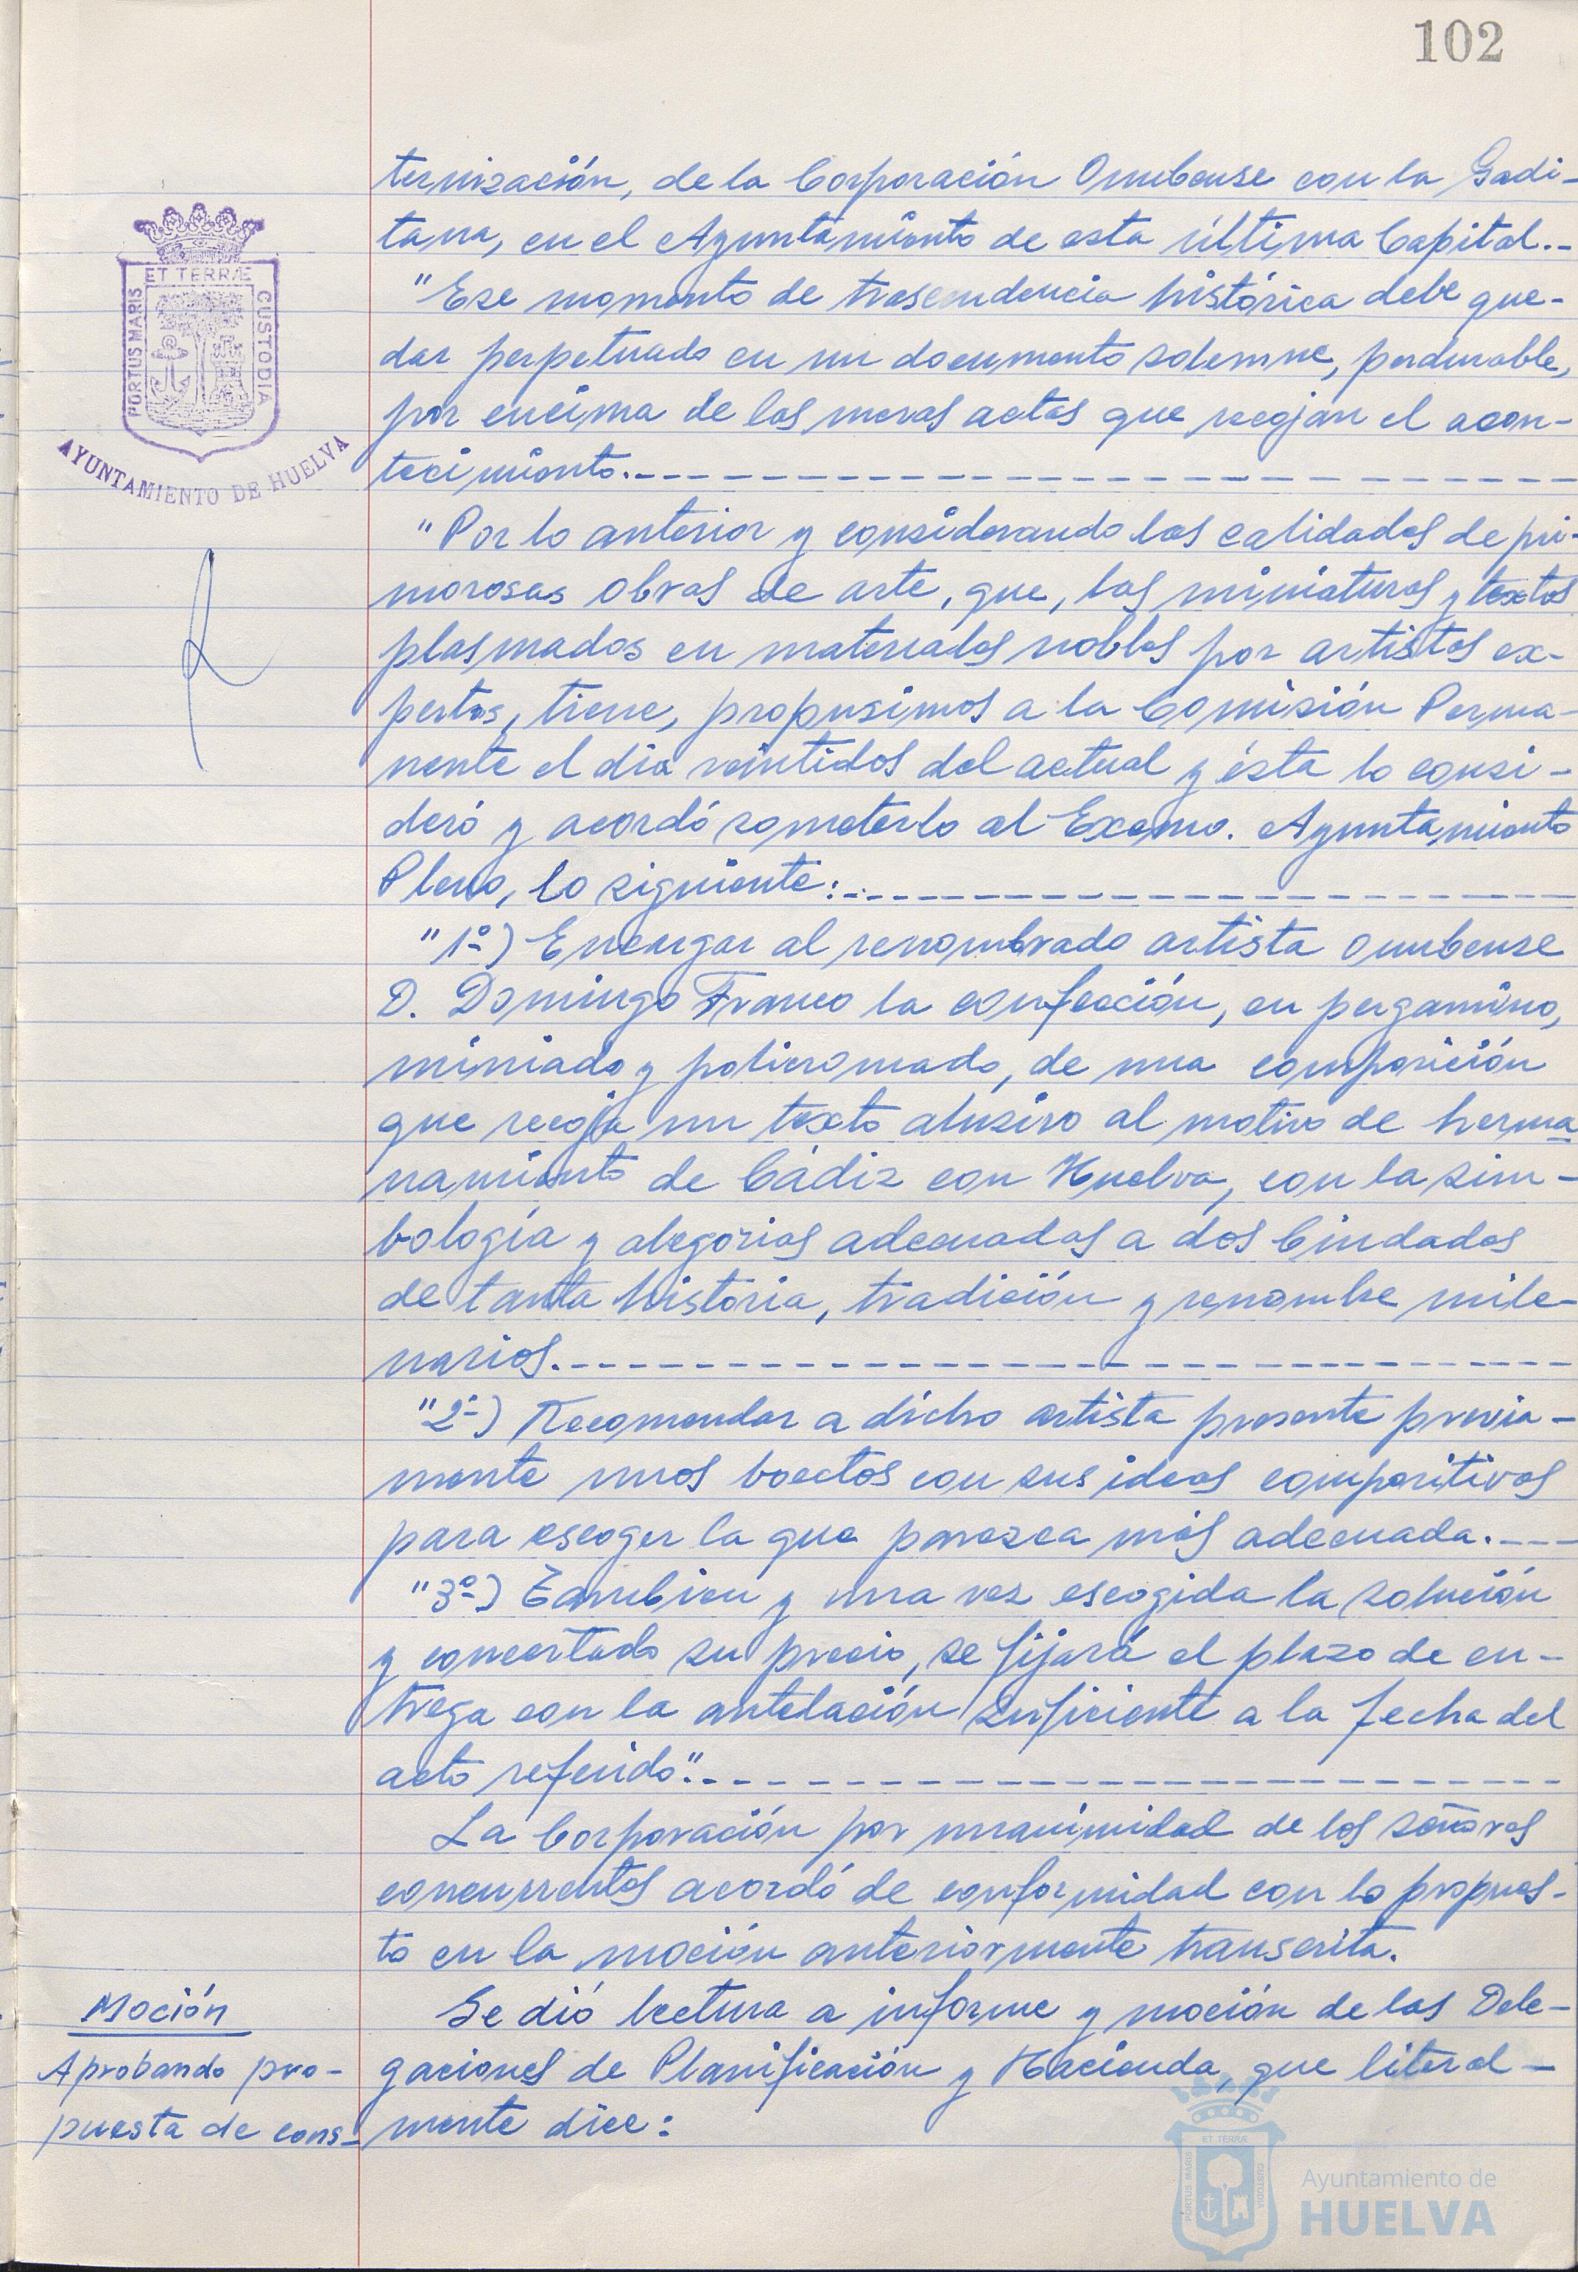 102
ternización, de la Corporación Onubense con la Gadi-
tana, en el Ayuntamiento de esta última Capital.-
"Ese momento de trascendencia histórica debe que-
dar perpetuado en un documento solemne, perdurable,
por encima de las meras actas que recojan el acon-
tecimiento.-
"Por lo anterior y considerando las calidades de pri-
morosas obras de arte, que, las miniaturas y textos
plasmados en materiales nobles por artistas ex-
pertos, tiene, propusimos a la Comisión Perma-
nente el día veintidos del actual y ésta lo consi-
deró y acordó someterlo al Excmo. Ayuntamiento
Pleno, lo siguiente:-
"1º) Encargar al renombrado artista onubense
D. Domingo Franco la confección, en pergamino,
miniado y policromado, de una composición
que recoja un texto alusivo al motivo de herma
namiento de Cádiz con Huelva, con la sim-
bología y alegorias adecuadas a dos Ciudades
de tanta historia, tradición y renombre mile-
narios.-
"2º) Recomendar a dicho artista presente previa-
mente unos bocetos con sus ideas compositivas
para escoger la que parezca más adecuada.-
"3º) Tambien y una vez escogida la solución
y concertado su precio, se fijará el plazo de en-
trega con la antelación suficiente a la fecha del
acto referido".-
La Corporación por unanimidad de los señores
concurrentes acordó de conformidad con lo propues-
to en la moción anteriormente transcrita.
Se dió lectura a informe y moción de las Dele-
gaciones de Planificación y Hacienda, que literal-
mente dice:
Moción
Aprobando pro-
puesta de cons-
PORTUS MARIS ET TERRÆ CUSTODIA
AYUNTAMIENTO DE HUELVA
PORTUS MARIS ET TERRÆ CUSTODIA
Ayuntamiento de
HUELVA